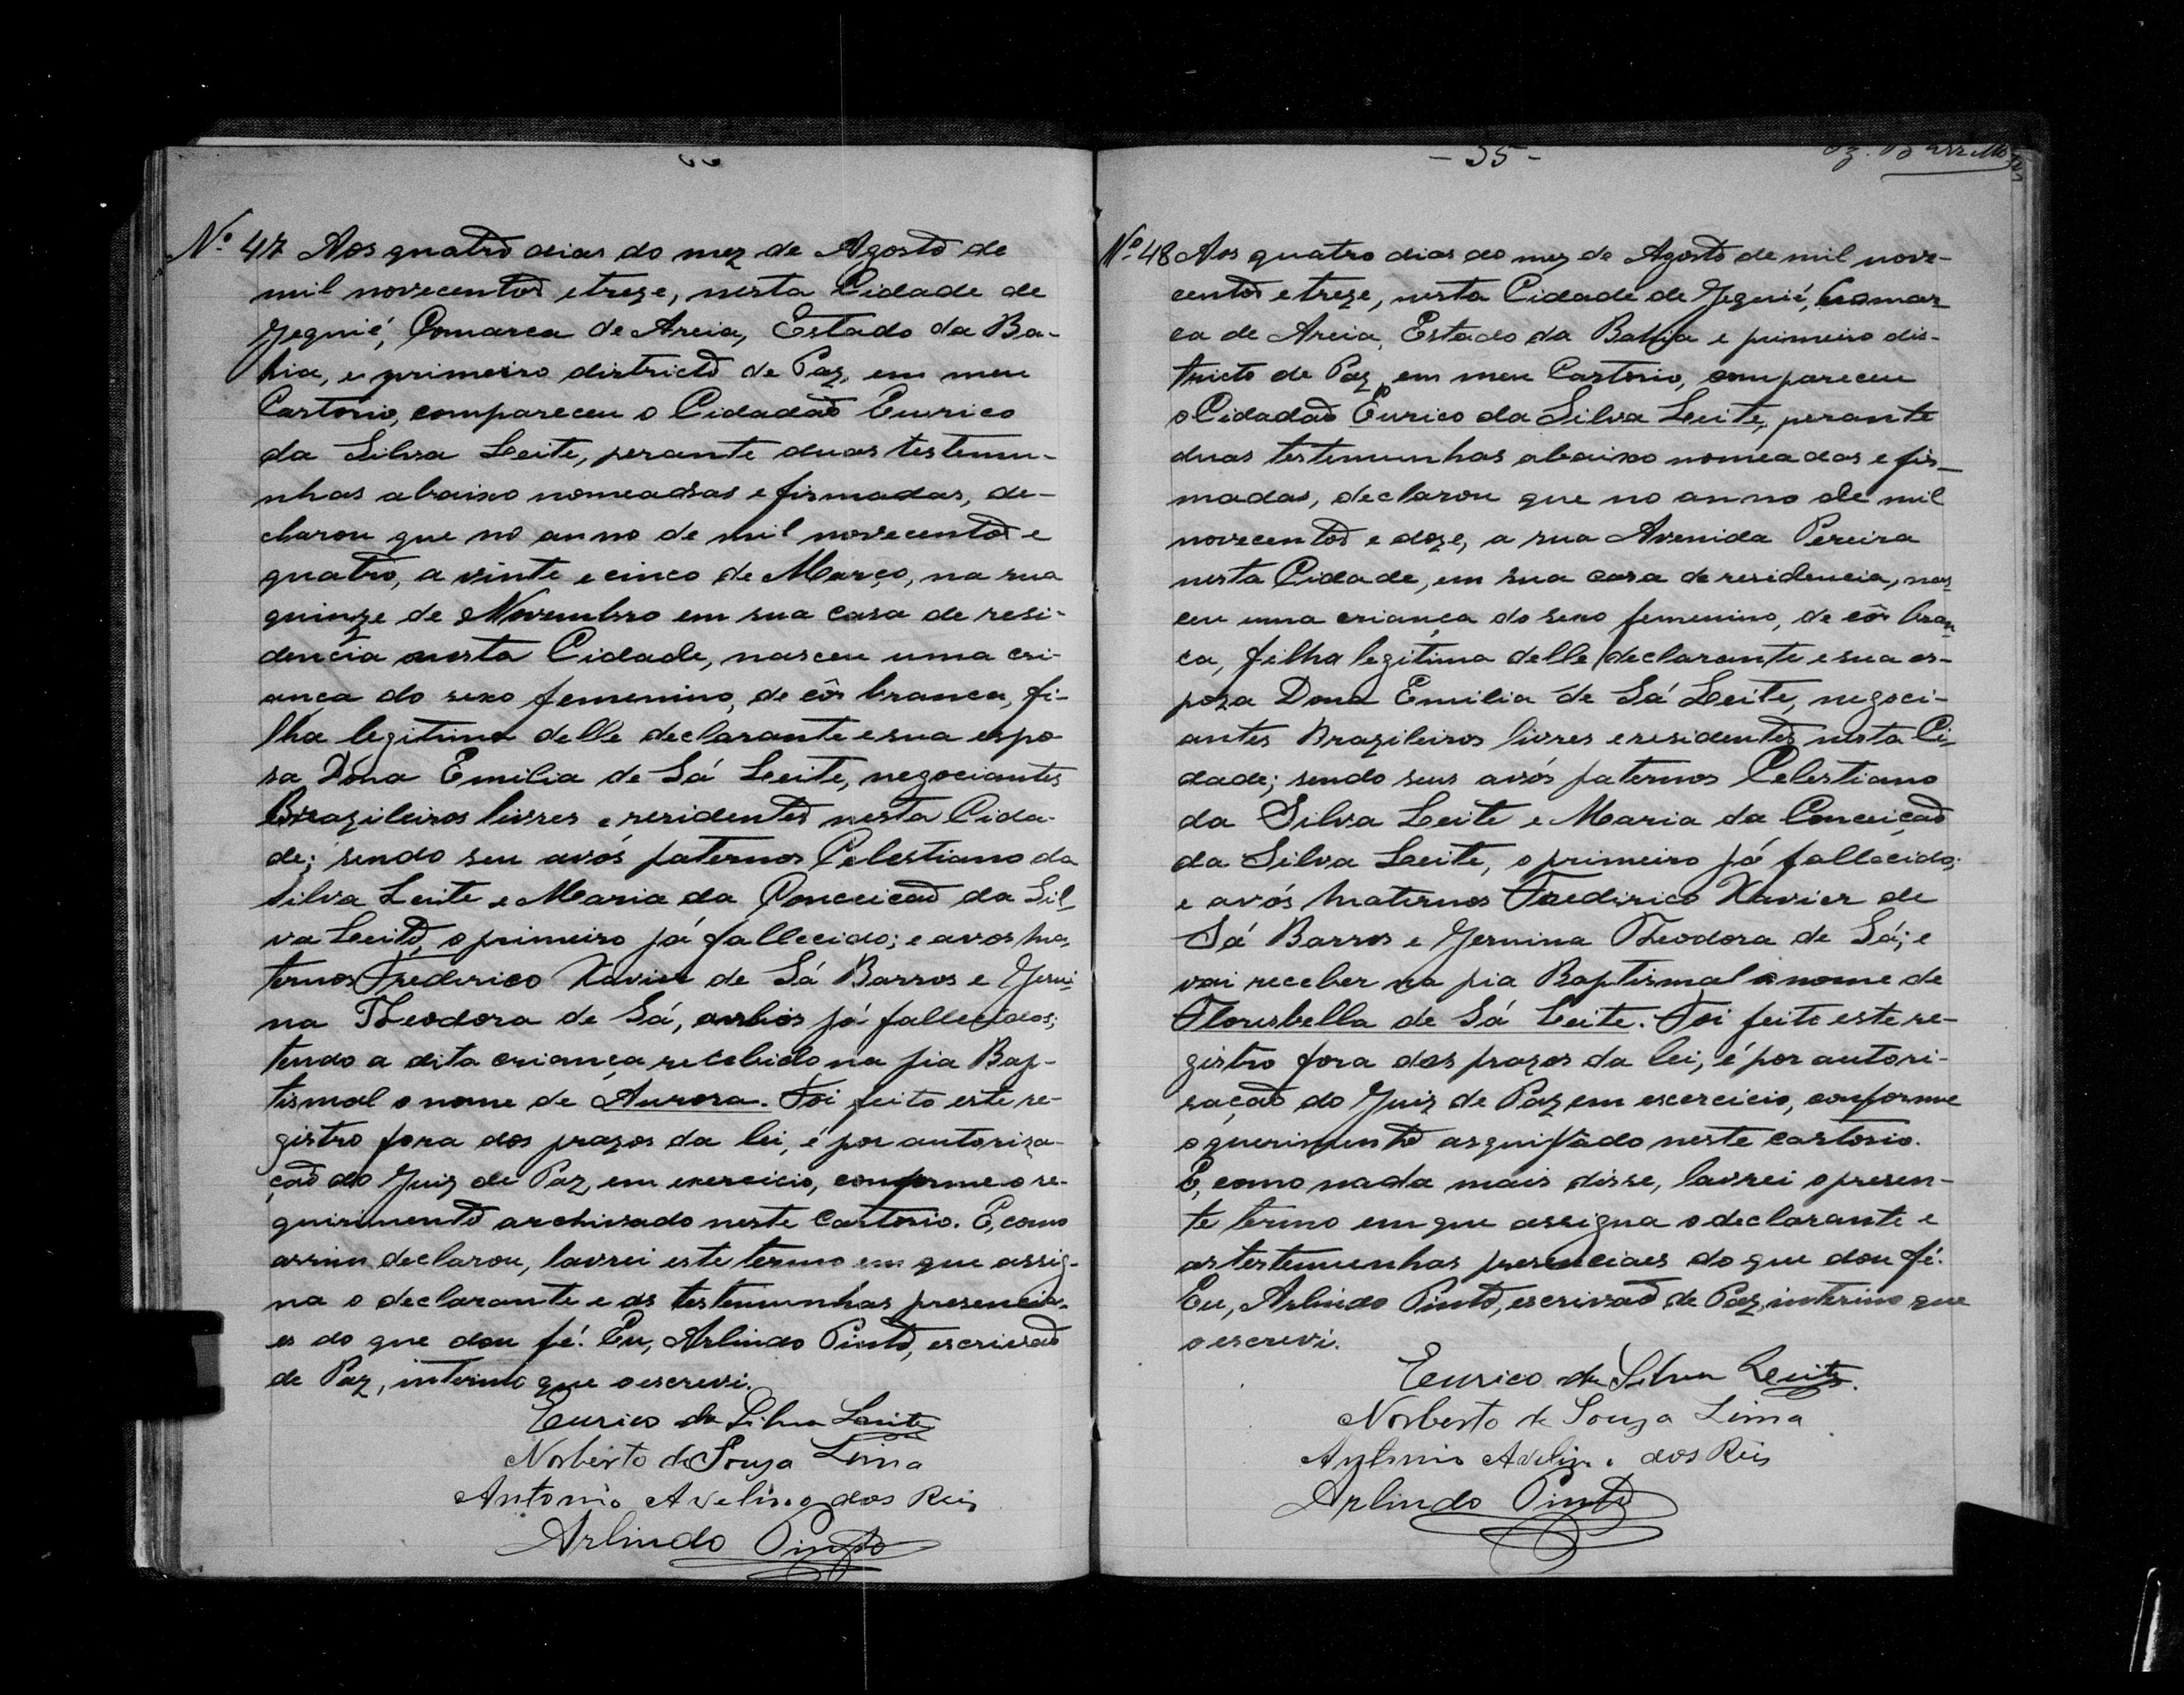 Nº 47 Aos quatro dias do mez de Agosto de
mil novecentos e treze, nesta Cidade de
Jequié, Comarca de Areia, Estado da Ba-
hia, e primeiro districto de Paz, em meu
Cartorio, compareceu o Cidadão Eurico
da Silva Leite, perante duas testemu-
nhas abaixo nomeadas e firmadas, de-
clarou que no anno de mil novecentos e
quatro, a vinte e cinco de Março, na rua
quinze de Novembro em sua casa de resi-
dencia nesta Cidade, nasceu uma cri-
ança do sexo femenino, de côr branca, fi-
lha legitima delle declarante e sua espo-
sa Dona Emilia de Sá Leite, negociantes
Brazileiros livres e residentes nesta Cida-
de; sendo seu avós paternos Celestiano da
Silva Leite e Maria da Conceicão da Sil-
va Leite, o primeiro já fallecido; e avos ma-
ternos Frederico Xavier de Sá Barros e Jermi-
na Theodora de Sá, ambos já fallecidos;
tendo a dita criança recebido na pia Bap-
tismal o nome de Aurora. Foi feito este re-
gistro fora dos prazos da lei, é por autoriza-
ção do Juiz de Paz, em exercicio, conforme o re-
quirimento archivado neste Cartorio. E, como
assim declarou, lavrei este termo em que assig-
na o declarante e as testemunhas presencia-
es do que dou fé. Eu, Arlindo Pinto, escrivão
de Paz, interino que o escrevi.
Eurico da Silva Leite
Norberto de Souza Lima
Antonio Avelino dos Reis
Arlindo Pinto
- 35 -
Nº 48 Aos quatro dias do mez de Agosto de mil nove-
centos e treze, nesta Cidade de Jequié, Comar-
ca de Areia, Estado da Bahia e primeiro dis-
tricto de Paz, em meu Cartorio, compareceu
o Cidadão Eurico da Silva Leite, perante
duas testemunhas abaixo nomeadas e fir-
madas, declarou que no anno de mil
novecentos e doze, a rua Avenida Pereira
nesta Cidade, em sua casa de residencia, nas-
ceu uma criança do sexo femenino, de côr bran-
ca, filha legitima delle declarante e sua es-
poza Dona Emilia de Sá Leite, negoci-
antes Brazileiros livres e residentes nesta Ci-
dade; sendo seus avós paternos Celestiano
da Silva Leite e Maria da Conceição
da Silva Leite, o primeiro já fallecido;
e avós maternos Frederico Xavier de
Sá Barros e Jermina Theodora de Sá; e
vai receber na pia Baptismal o nome de
Florisbella de Sá Leite. Foi feito este re-
gistro fora dos prazos da lei, é por autori-
sação do Juiz de Paz em excercicio, conforme
o querimento arquivado neste cartorio.
E, como nada mais disse, lavrei o presen-
te termo em que assigna o declarante e
as testemunhas presenciaes do que dou fé.
Eu, Arlindo Pinto, escrivão de Paz, interino que
o escrevi.
Eurico da Silva Leite
Norberto de Souza Lima
Antonio Avelino dos Reis
Arlindo Pinto